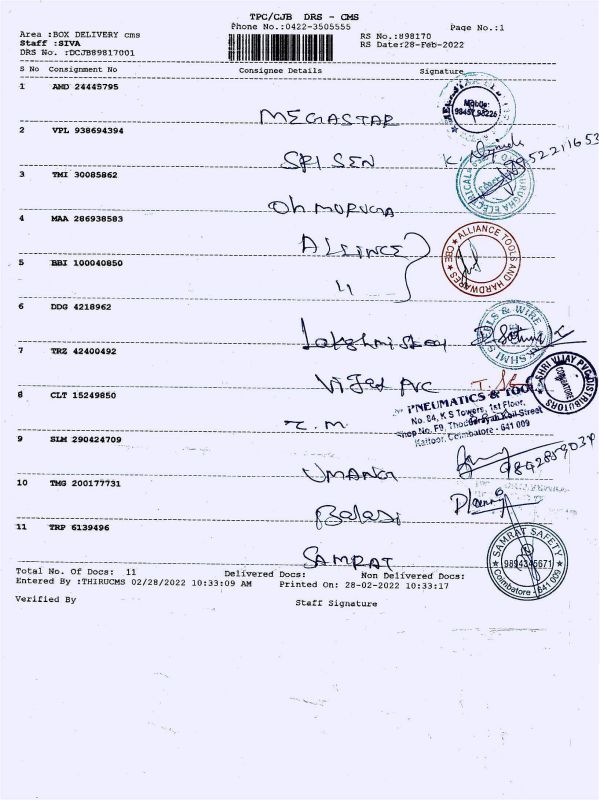 TPC/CJB DRS - CMS
Phone No.:0422-3505555
Page No.:1
Area :BOX DELIVERY cms
RS No.:898170
Staff :SIVA
RS Date:28-Feb-2022
DRS No. :DCJB89817001
S No Consignment No Consignee Details Signature
1 AMD 24445795
MEGASTAR
Mobile:
98457 98226
2 VPL 938694394
SRI SEN
3 TMI 30085862
Oh MORUGA
ELECTRICAL
4 MAA 286938583
ALLIANCE
ALLIANCE TOOLS AND HARDWARES CBE
5 BBI 100040850
11
6 DDG 4218962
Lakshmi Steel
7 TRZ 42400492
Vijay PVC
SHRI VIJAY PVC DISTRIBUTORS
COIMBATORE
8 CLT 15249850
T. M.
PNEUMATICS & TOOLS
No. 84, K S Towers, 1st Floor,
Shop No. F9, Thodarayan Koil Street
Kattoor, Coimbatore - 641 009
9 SLM 290424709
UMANG
9842859034
10 TMG 200177731
Balaji
11 TRP 6139496
SAMRAT
SAMRAT SAFETY
9894345671
Coimbatore - 641 009
Total No. Of Docs: 11 Delivered Docs: Non Delivered Docs:
Entered By :THIRUCMS 02/28/2022 10:33:09 AM Printed On: 28-02-2022 10:33:17
Verified By Staff Signature